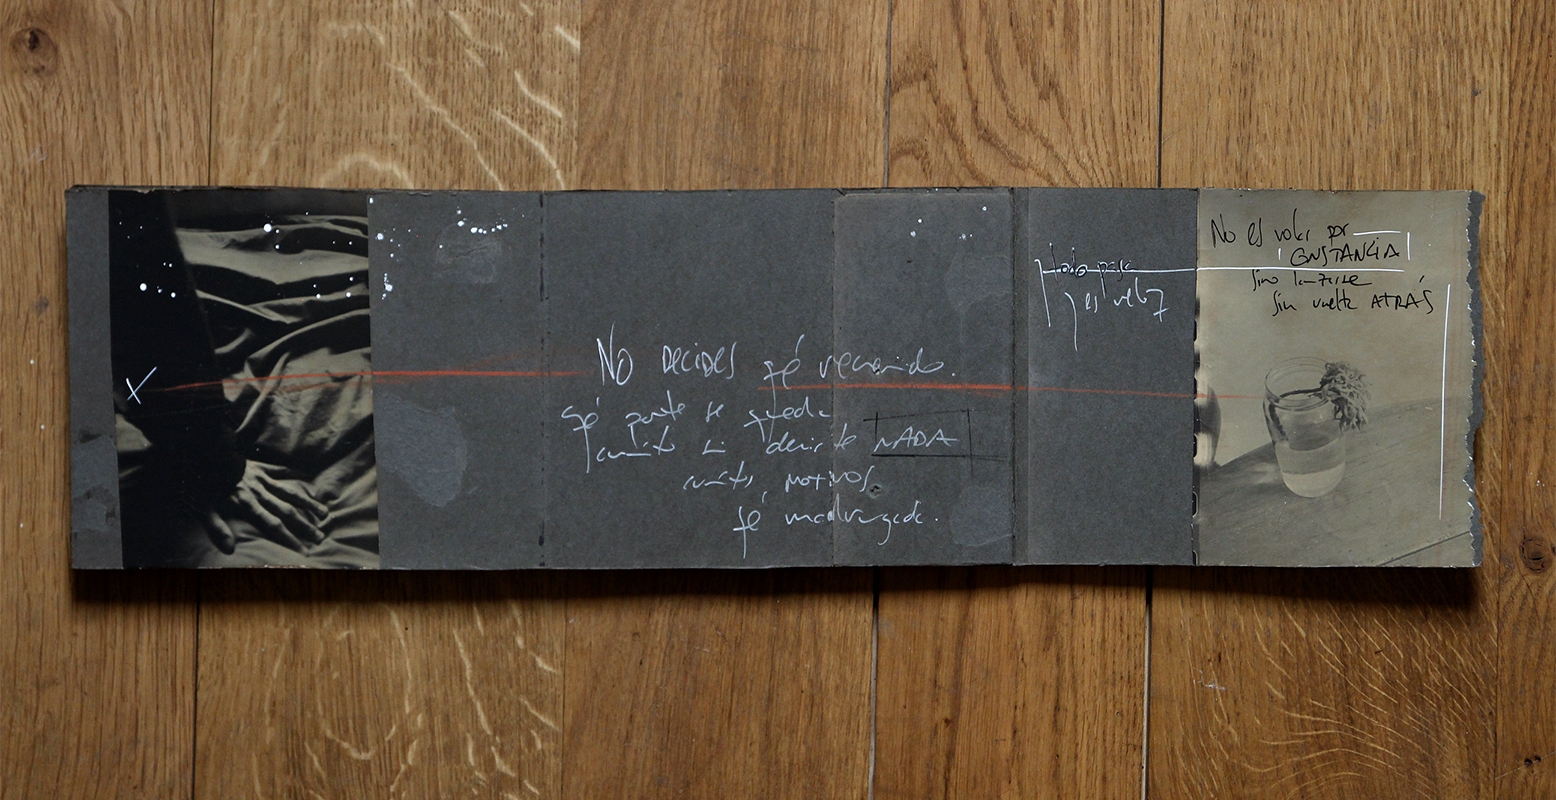 X
No DECIDES qé recuerdo.
qé parte se queda
cuánto sin decirte NADA
cuántos motivos
qé madrugada.
todo pasa
y es veloz
No es volar por
CONSTANCIA
sino lanzarse
sin vuelta ATRÁS